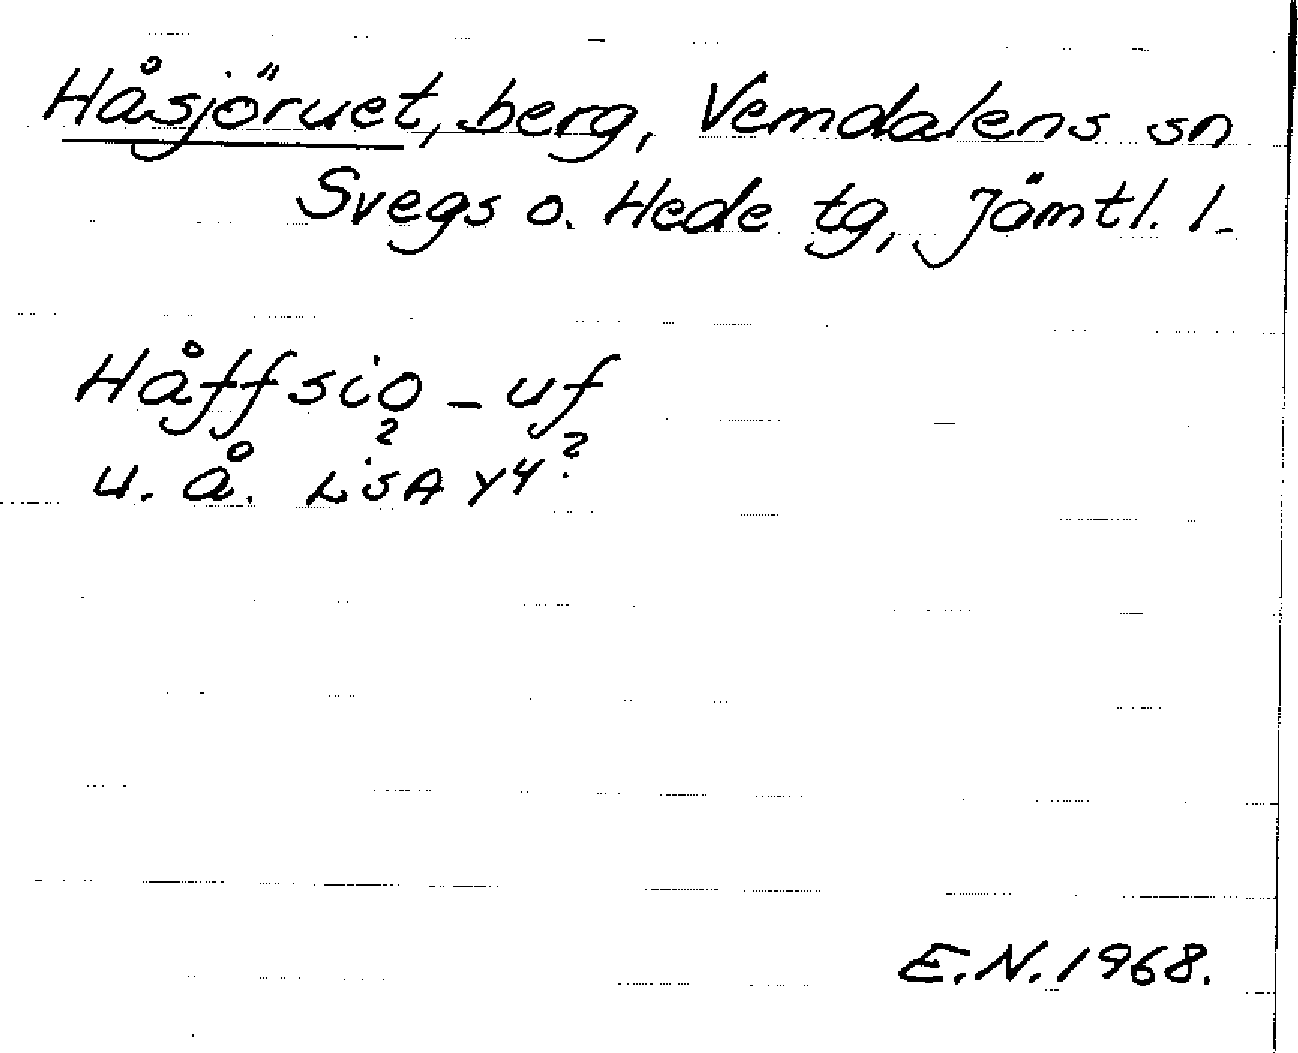 Håsjöruet, berg, Vemdalens sn
Svegs o. Hede tg, Jämtl. l.
Håffsio - uf
u. å. LSA Y4?
E.N. 1968.